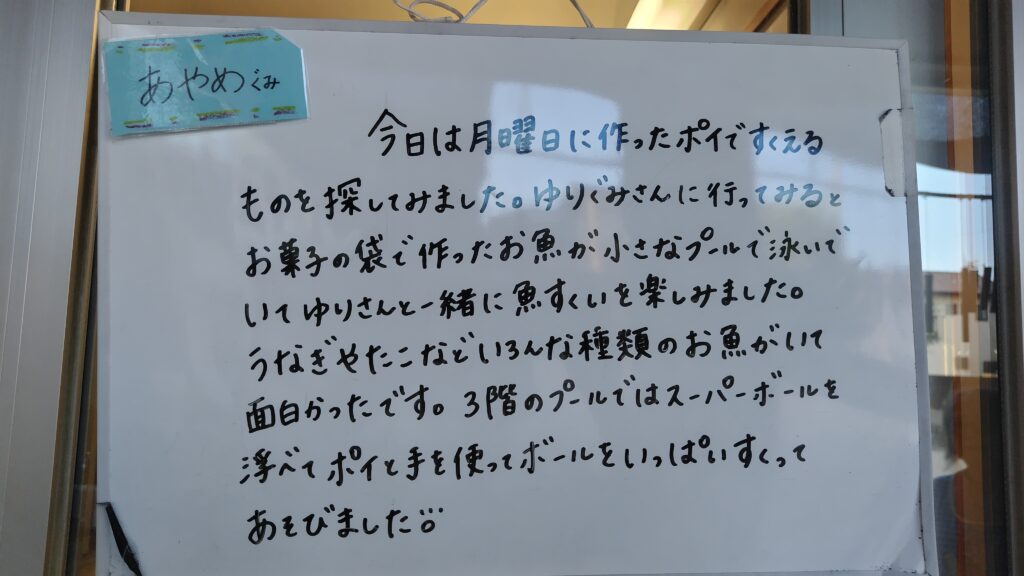 あやめぐみ
今日は月曜日に作ったポイですくえる
ものを探してみました。ゆりぐみさんに行ってみると
お菓子の袋で作ったお魚が小さなプールで泳いで
いてゆりさんと一緒に魚すくいを楽しみました。
うなぎやたこなどいろんな種類のお魚がいて
面白かったです。3階のプールではスーパーボールを
浮べてポイと手を使ってボールをいっぱいすくって
あそびました。